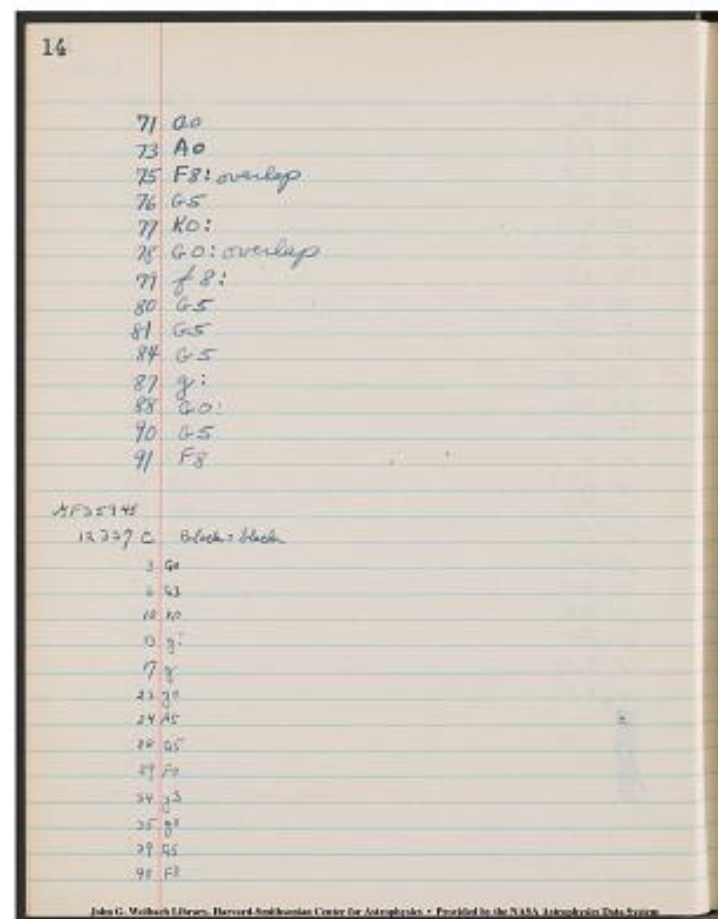 14
71 G0
73 A0
75 F8: overlap
76 G5
77 K0:
78 G0: overlap
79 f8:
80 G5
81 G5
84 G5
87 g:
88 G0:
90 G5
91 F8
C
3 G0
g:
7 g
24 A5
28 G5
29 F0
34 g3
39 G5
40 F8
John G. Wolbach Library, Harvard-Smithsonian Center for Astrophysics • Provided by the NASA Astrophysics Data System